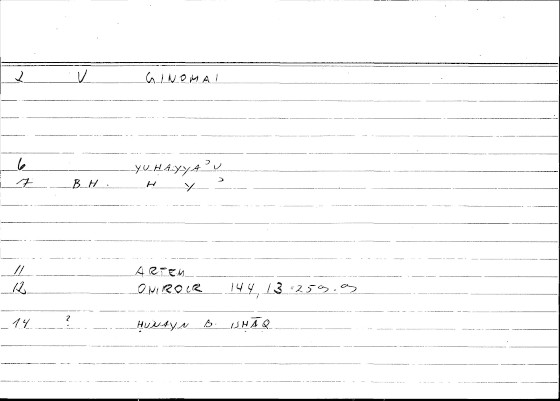 2 V GINOMAI
6 YUHAYYAʾU
7 B.H. H Y ʾ
11 ARTEM
12 ONIROCR 144, 13 · 259.9
14 ? ḤUNAYN B. ISḤĀQ